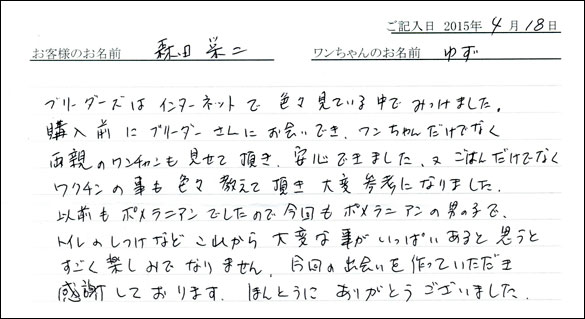 ご記入日 2015年 4月 18日
お客様のお名前 森田 栄二 ワンちゃんのお名前 ゆず
ブリーダーズは インターネットで 色々見ている中で みつけました。
購入前に ブリーダーさんに お会いでき、ワンちゃんだけでなく
両親のワンチャンも 見せて頂き、安心できました、又 ごはんだけでなく
ワクチンの事も 色々 教えて頂き 大変 参考になりました。
以前も ポメラニアンでしたので 今回も ポメラニアンの男の子で、
トイレのしつけなど これから 大変な事が いっぱいあると思うと
すごく楽しみでなりません。今回の出会いを作っていただき
感謝しております。ほんとうに ありがとうございました。